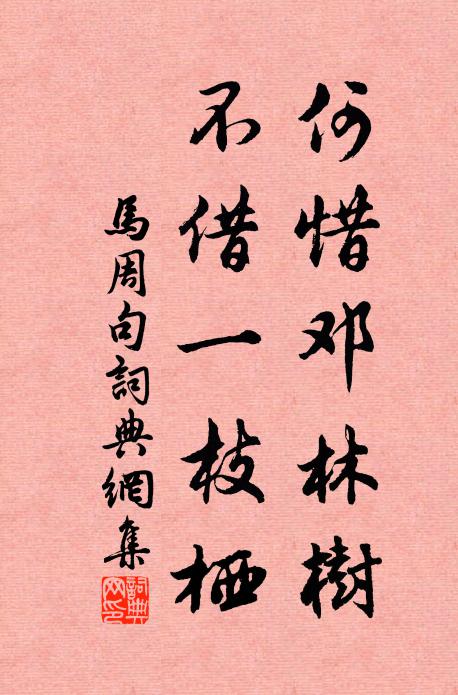 何惜邓林樹
不借一枝栖
馬周句詞典網集
詞典網印